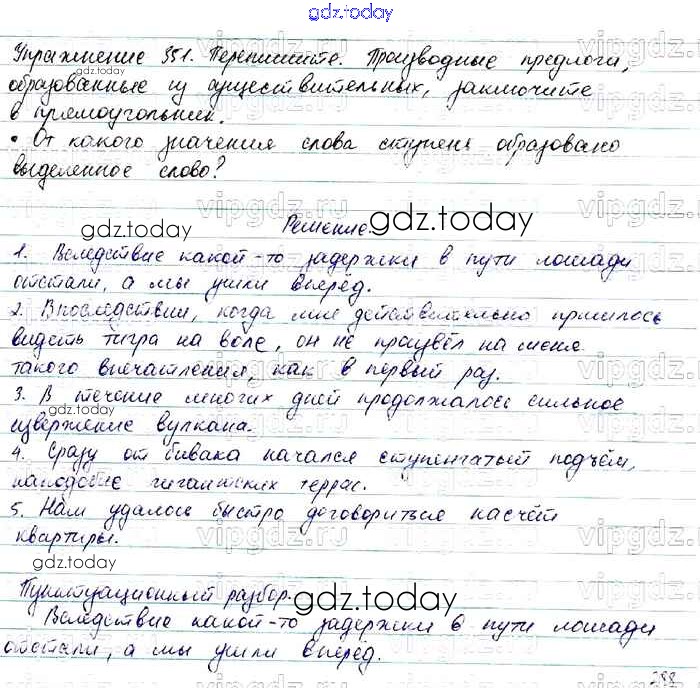 gdz.today
Упражнение 351. Перепишите. Производные предлоги,
gdz.today
образованные из существительных, заключите
в прямоугольник.
• От какого значения слова ступень образовано
выделенное слово?
gdz.today
gdz.today
Решение.
1. Вследствие какой-то задержки в пути лошади
отстали, а мы ушли вперёд.
2. Впоследствии, когда мне действительно пришлось
видеть тигра на воле, он не произвёл на меня
такого впечатления, как в первый раз.
3. В течение многих дней продолжалось сильное
извержение вулкана.
4. Сразу от бивака начался ступенчатый подъём,
наподобие гигантских террас.
5. Нам удалось быстро договориться насчёт
квартиры.
gdz.today
Пунктуационный разбор.
gdz.today
Вследствие какой-то задержки в пути лошади
отстали, а мы ушли вперёд.
288
vipgdz.ru